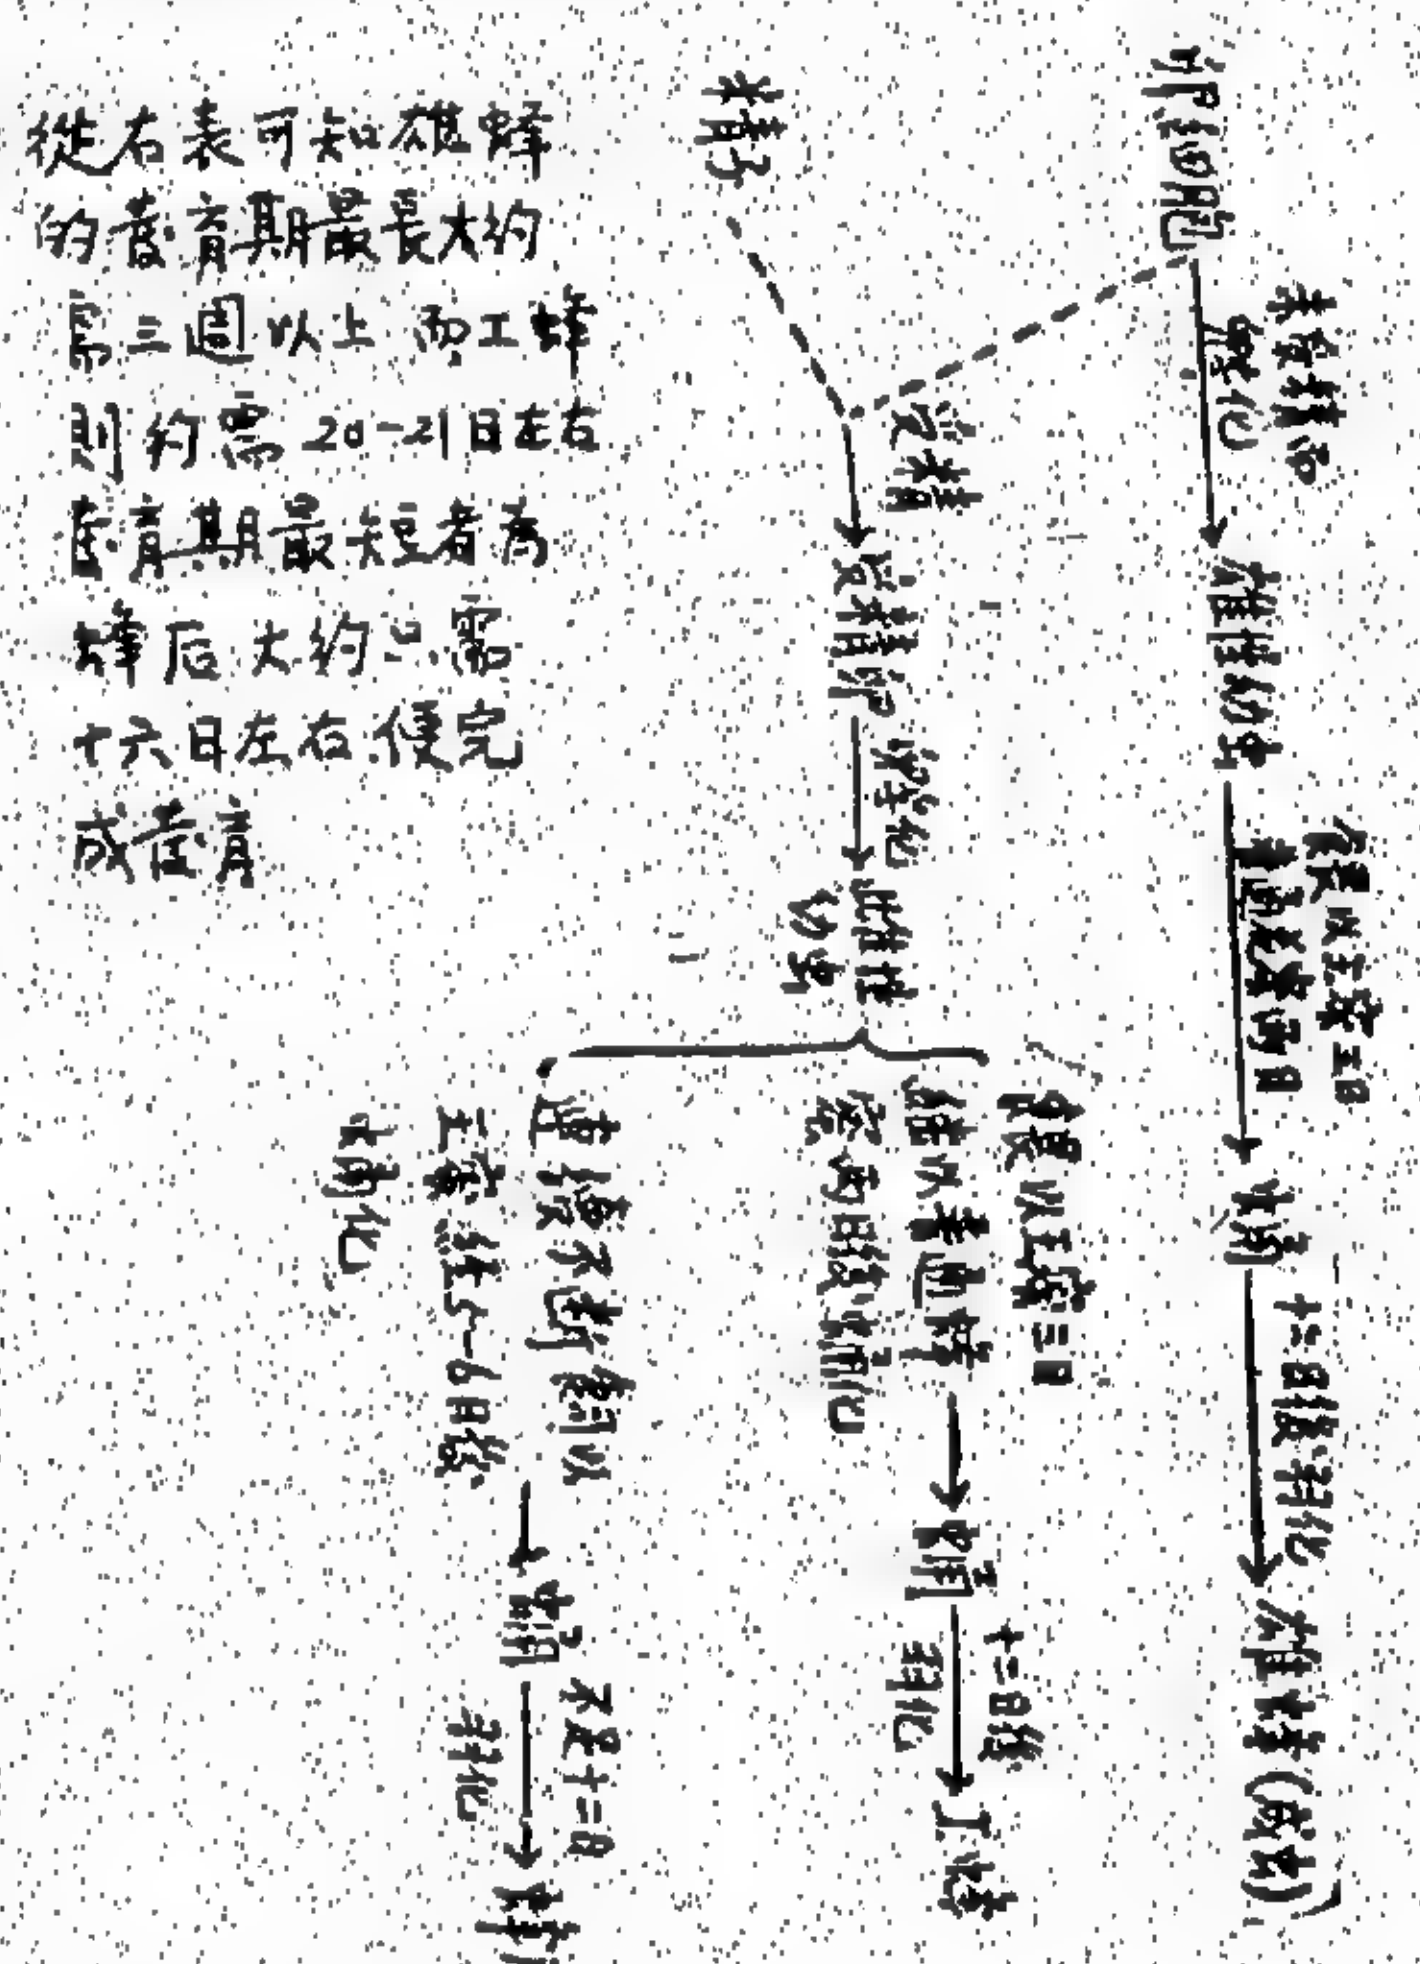 從右表可知雄蜂
的發育期最長大約
需三週以上而工蜂
則約需20-21日左右
發育期最短者為
蜂后大約只需
十六日左右.便完
成發育
卵細胞
未受精而
孵化
雄性幼虫
餵以王漿三日
畫通常兩日
蛹
十二日後羽化
雄蜂(成虫)
精子
受精
受精卵
孵化
雌性
幼虫
餵以王漿三日
繼以
兩日後蛹化
蛹
十二日後
羽化
工蜂
連續不斷飼以
王漿經5-6日後
蛹化
蛹
不足十二日
羽化
蜂